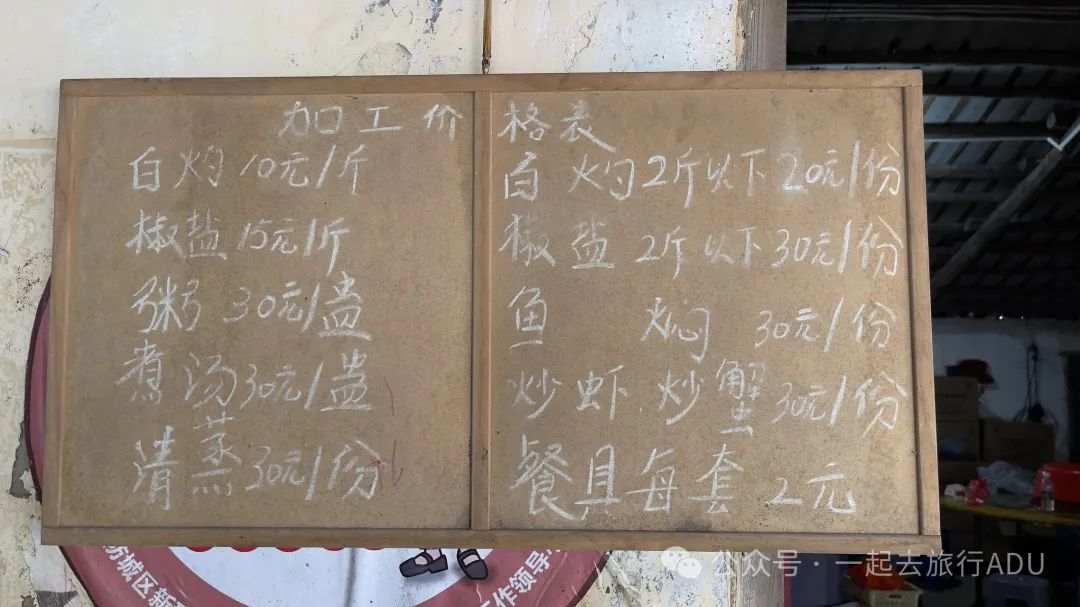 加工价格表
白灼10元/斤
椒盐15元/斤
粥30元/盅
煮汤30元/盅
清蒸30元/份
白灼2斤以下20元/份
椒盐2斤以下30元/份
鱼焖30元/份
炒虾炒蟹30元/份
餐具每套2元
防城区新
工作领导
公众号·一起去旅行ADU